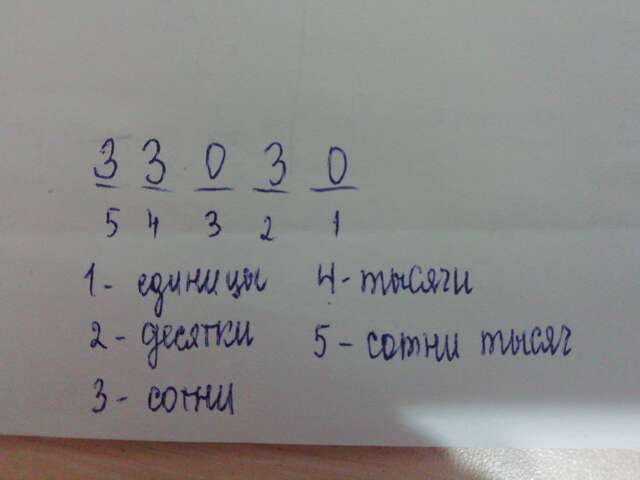 3 3 0 3 0
5 4 3 2 1
1 - единицы 4 - тысячи
2 - десятки 5 - сотни тысяч
3 - сотни